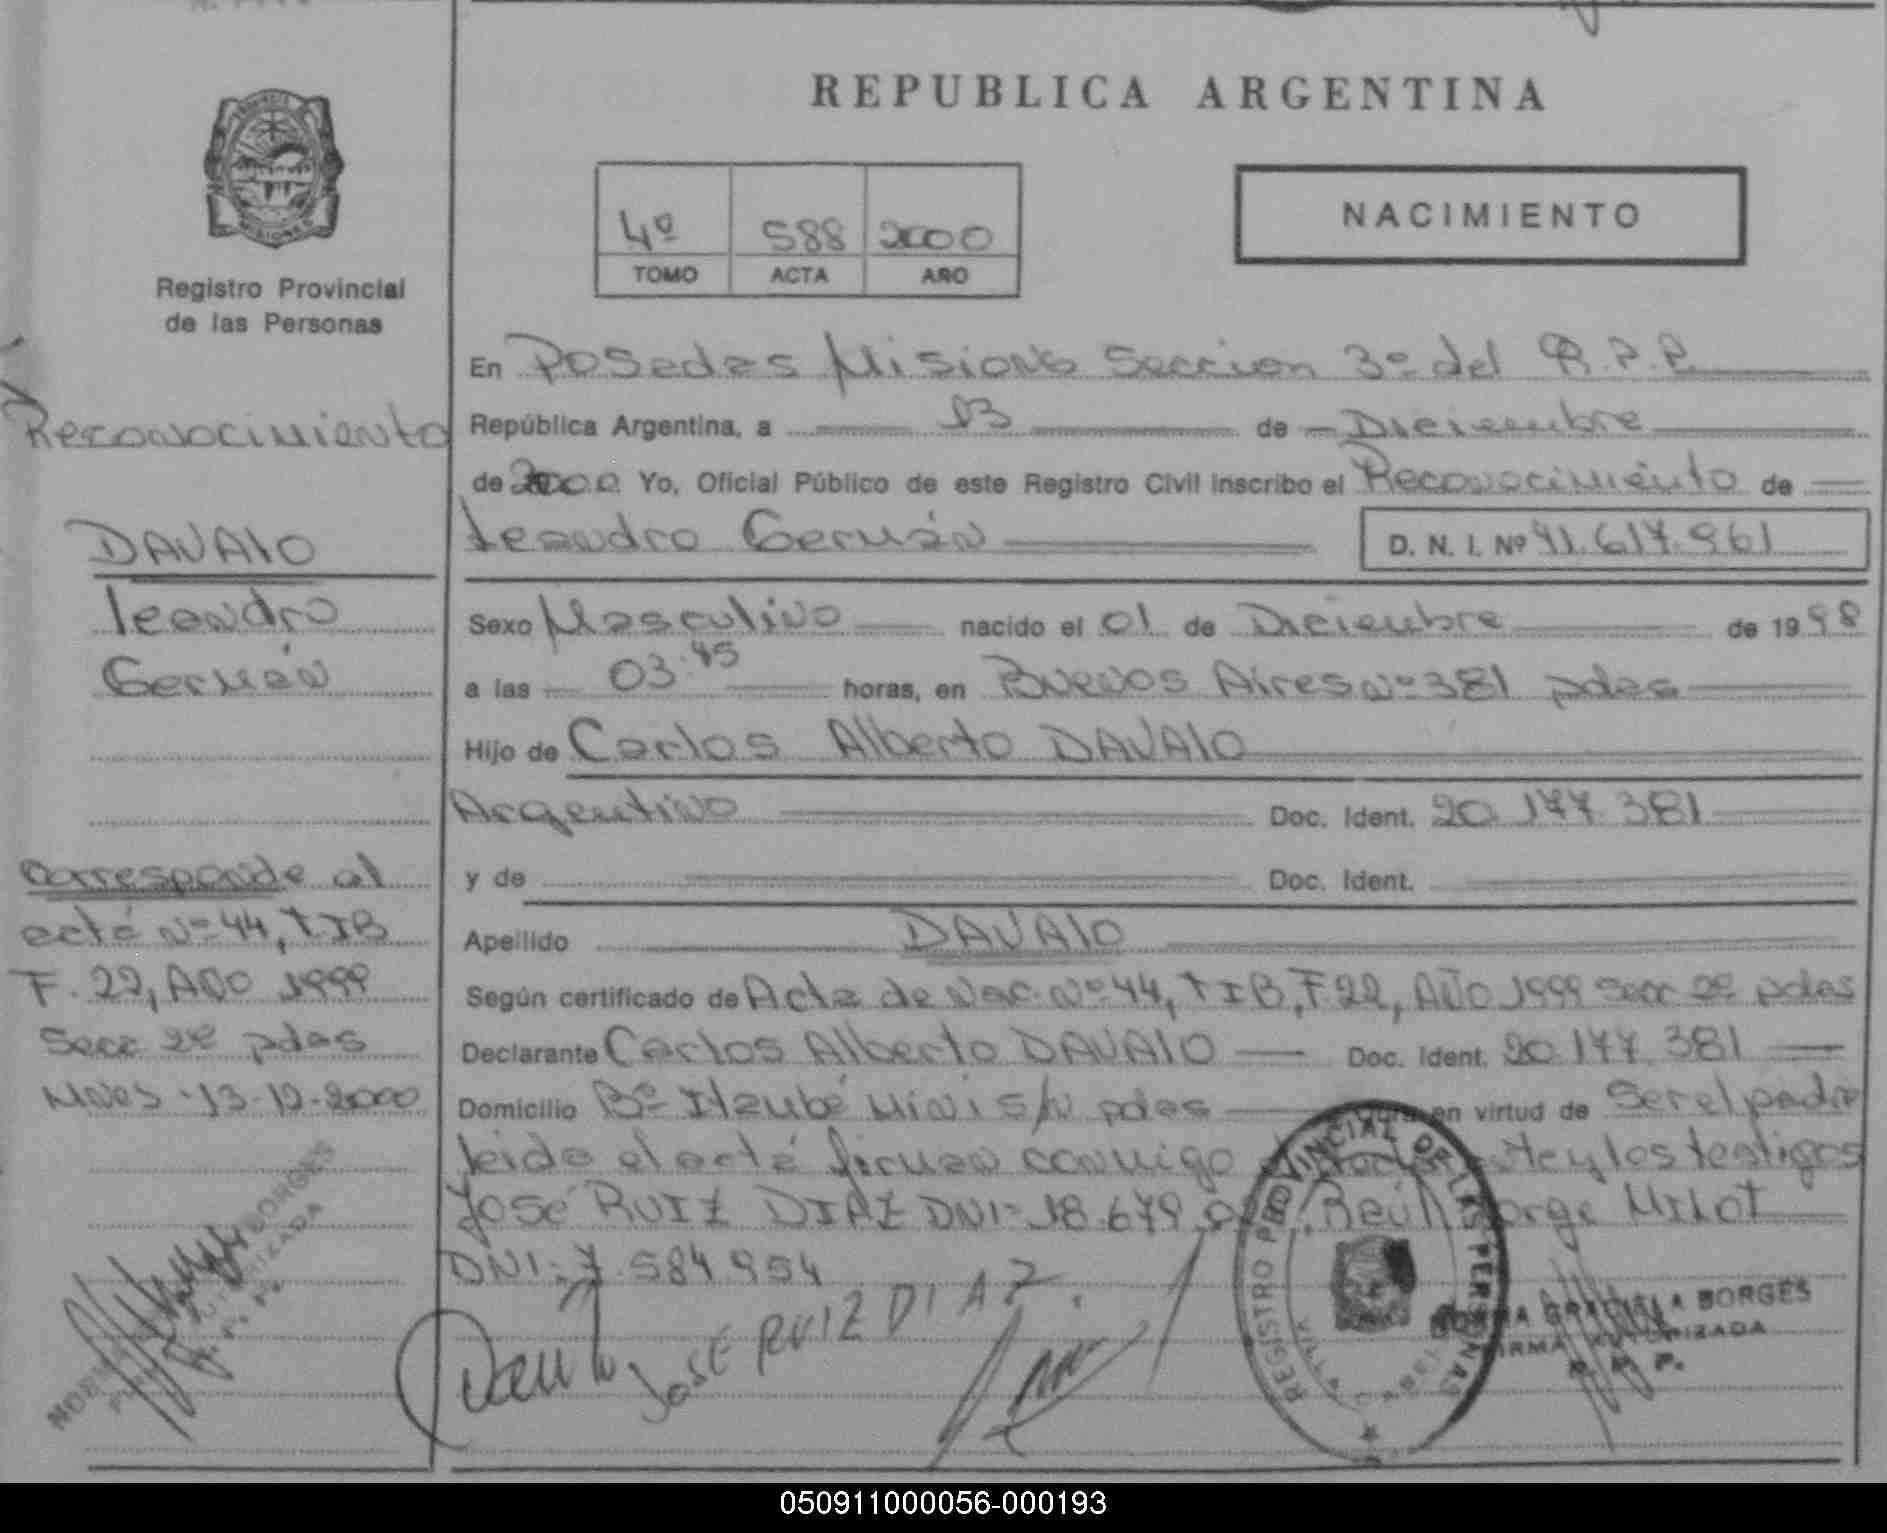 REPUBLICA ARGENTINA
4º 588 2000
TOMO ACTA AÑO
NACIMIENTO
Registro Provincial
de las Personas
Reconocimiento
DAVALO
Leandro
Germán
Corresponde al
acta Nº 44, T I B
F. 22, AÑO 1999
Secc 2º pdas
Mnes - 13-12-2000
En Posadas Misiones Seccion 3º del R.P.P.
República Argentina, a 13 de Diciembre
de 2000 Yo, Oficial Público de este Registro Civil inscribo el Reconocimiento de
Leandro Germán D. N. I. Nº 41.617.961
Sexo Masculino nacido el 01 de Diciembre de 1998
a las 03.45 horas, en Buenos Aires Nº 381 pdas
Hijo de Carlos Alberto DAVALO
Argentino Doc. Ident. 20.177.381
y de Doc. Ident.
Apellido DAVALO
Según certificado de Acta de Nac. Nº 44, T I B, F 22, AÑO 1999 Secc 2º pdas
Declarante Carlos Alberto DAVALO Doc. Ident. 20.177.381
Domicilio Bº Itaubé Mini s/n pdas en virtud de Ser el padre
leida el acta firman conmigo y los testigos
José RUIZ DIAZ DNI= 18.679 Raúl Jorge Milot
DNI: 7.584.954
JOSE RUIZ DIAZ.
REGISTRO PROVINCIAL DE LAS PERSONAS
NORMA GRACIELA BORGES
FIRMA AUTORIZADA
R. P. P.
050911000056-000193